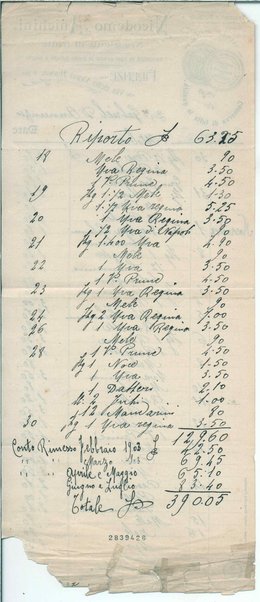 Riporto £ 63.25
18 Mele 90
Uva Regina 3.50
1 " Prune 4.50
19 Kg 1.½ Mele 1.30
1.½ Uva regina 5.25
20 1 Uva Regina 3.50
½ Uva di Napoli 90
21 Kg 1.400 Uva 4.90
Mele 90
22 1 Uva 3.50
1 " Prune 4.50
23 Kg 1 Uva Regina 3.50
Mele 90
24 Kg 2 Uva Regina 7.00
26 " 1 Uva Regina 3.50
Mele 90
28 1 " Prune 4.50
Kg 1 Noci 1.50
1 Uva 3.50
Datteri 2.10
M. 2 Fichi 1.00
N 12 Mandarini 80
30 Kg 1 Uva regina 3.50
129.60
Conto Rimesso Febbraio 1903 £ 42.50
" " Marzo 1903 69.45
Aprile e Maggio 65.10
Giugno e Luglio 83.40
Totale £ 390.05
2839426